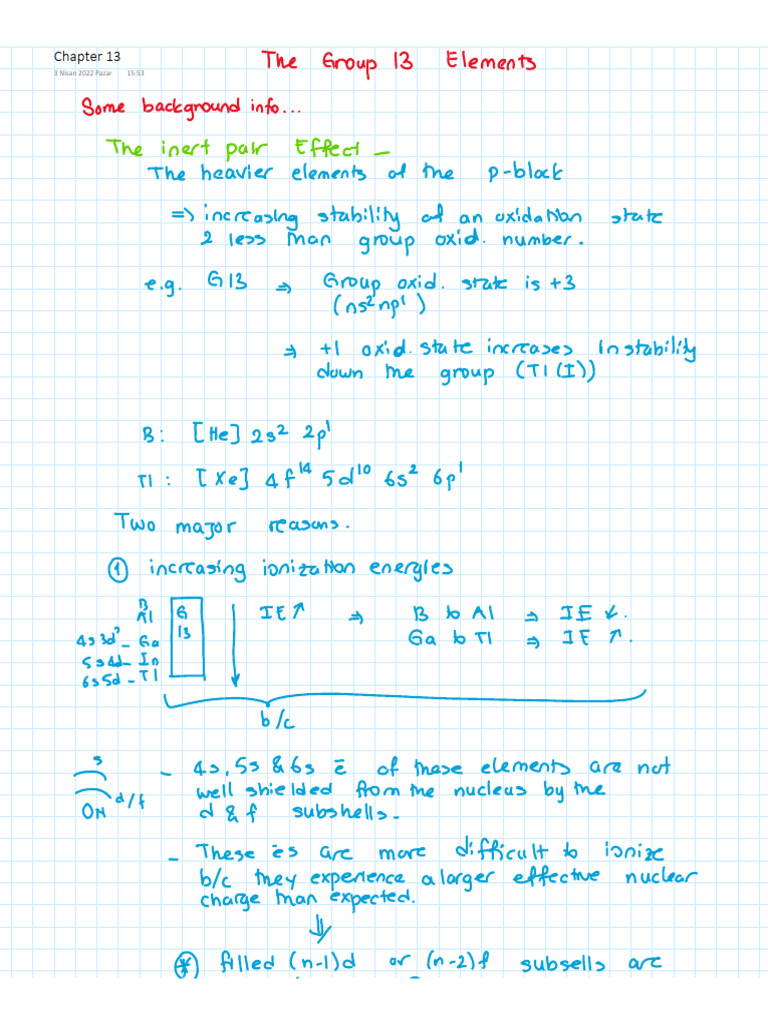 Chapter 13
3 Nisan 2022 Pazar 15:53
The Group 13 Elements
Some background info...
The inert pair Effect –
The heavier elements of the p-block
=> increasing stability of an oxidation state
2 less than group oxid. number.
e.g. G13 => Group oxid. state is +3
(ns² np¹)
=> +1 oxid. state increases in stability
down the group (Tl(I))
B: [He] 2s² 2p¹
Tl: [Xe] 4f¹⁴ 5d¹⁰ 6s² 6p¹
Two major reasons.
① increasing ionization energies
B
Al
4s 3d – Ga
5s 4d – In
6s 5d – Tl
G
13
IE ↑ => B to Al => IE ↓.
Ga to Tl => IE ↑.
b/c
s
d/f
ON
– 4s, 5s & 6s ē of these elements are not
well shielded from the nucleus by the
d & f subshells.
– These ēs are more difficult to ionize
b/c they experience a larger effective nuclear
charge than expected.
⇓
* filled (n-1)d or (n-2)f subsells are